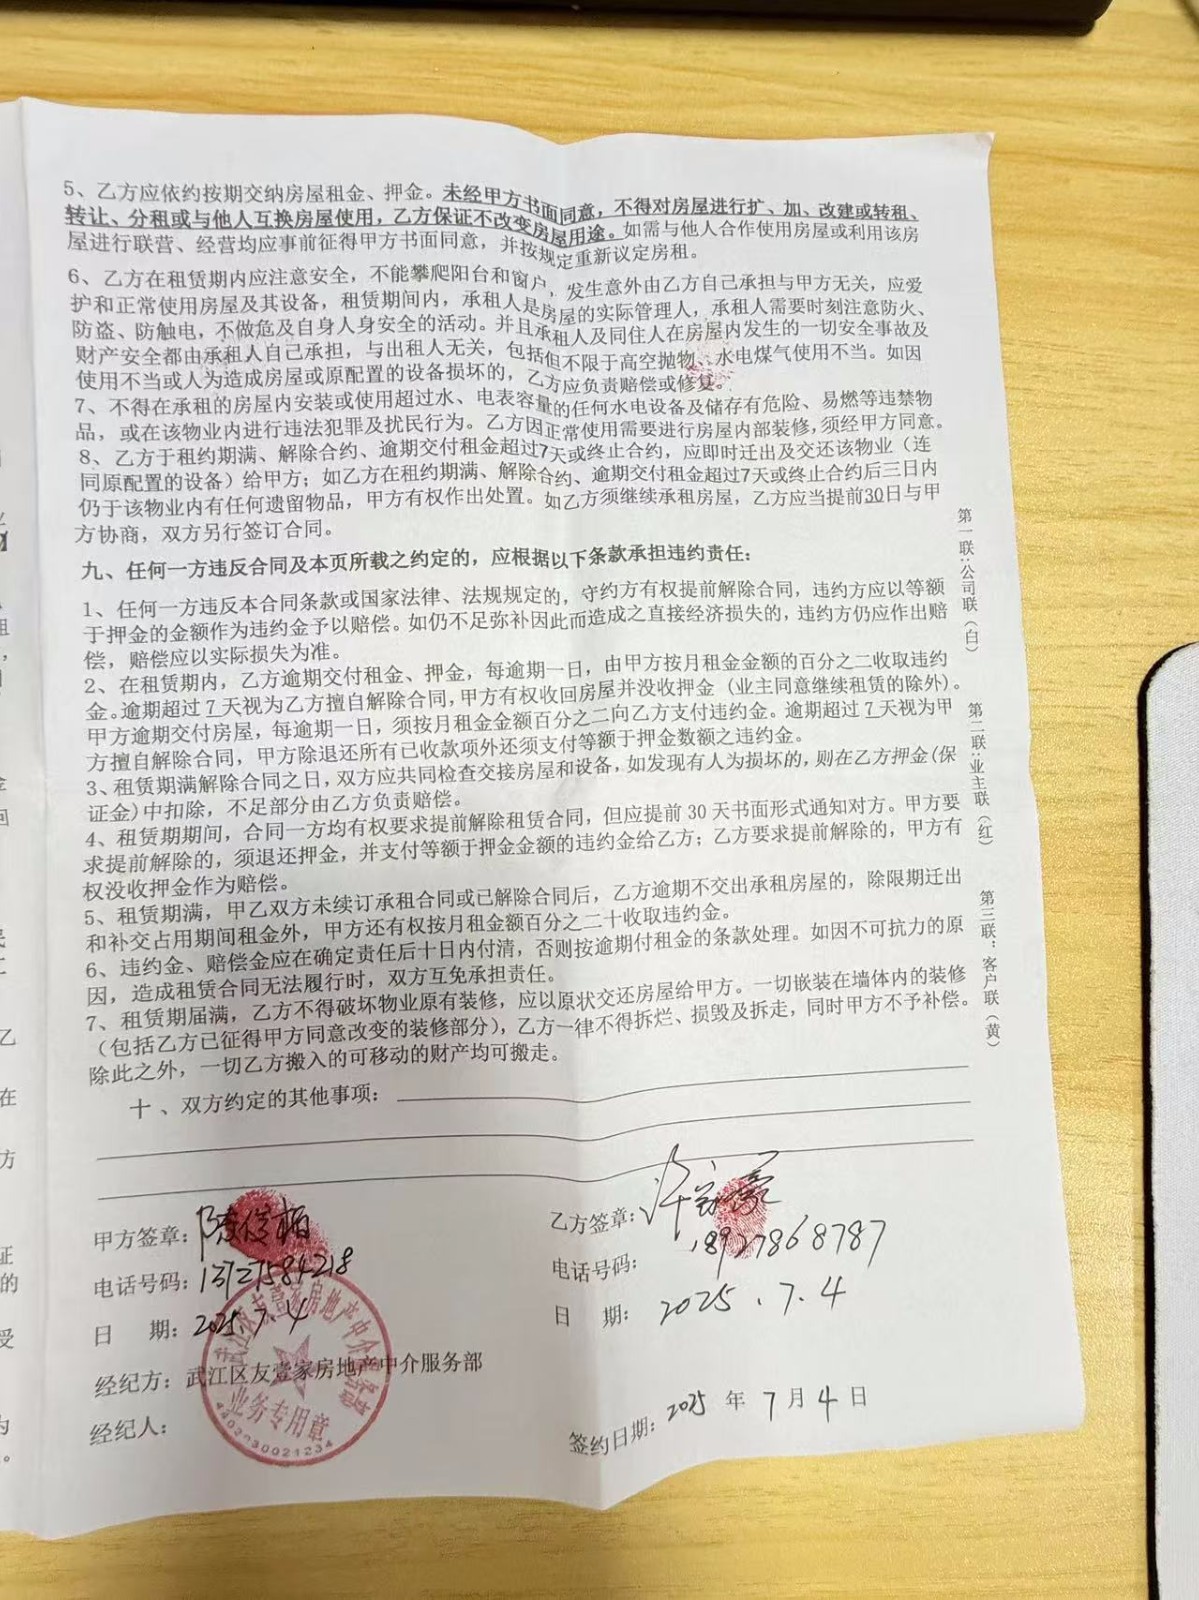 5、乙方应依约按期交纳房屋租金、押金。未经甲方书面同意，不得对房屋进行扩、加、改建或转租、
转让、分租或与他人互换房屋使用，乙方保证不改变房屋用途。如需与他人合作使用房屋或利用该房
屋进行联营、经营均应事前征得甲方书面同意，并按规定重新议定房租。
6、乙方在租赁期内应注意安全，不能攀爬阳台和窗户，发生意外由乙方自己承担与甲方无关，应爱
护和正常使用房屋及其设备，租赁期间内，承租人是房屋的实际管理人，承租人需要时刻注意防火、
防盗、防触电，不做危及自身人身安全的活动。并且承租人及同住人在房屋内发生的一切安全事故及
财产安全都由承租人自己承担，与出租人无关，包括但不限于高空抛物、水电煤气使用不当。如因
使用不当或人为造成房屋或原配置的设备损坏的，乙方应负责赔偿或修复。
7、不得在承租的房屋内安装或使用超过水、电表容量的任何水电设备及储存有危险、易燃等违禁物
品，或在该物业内进行违法犯罪及扰民行为。乙方因正常使用需要进行房屋内部装修,须经甲方同意。
8、乙方于租约期满、解除合约、逾期交付租金超过7天或终止合约，应即时迁出及交还该物业（连
同原配置的设备）给甲方；如乙方在租约期满、解除合约、逾期交付租金超过7天或终止合约后三日内
仍于该物业内有任何遗留物品，甲方有权作出处置。如乙方须继续承租房屋，乙方应当提前30日与甲
方协商，双方另行签订合同。
九、任何一方违反合同及本页所载之约定的，应根据以下条款承担违约责任：
1、任何一方违反本合同条款或国家法律、法规规定的，守约方有权提前解除合同，违约方应以等额
于押金的金额作为违约金予以赔偿。如仍不足弥补因此而造成之直接经济损失的，违约方仍应作出赔
偿，赔偿应以实际损失为准。
2、在租赁期内，乙方逾期交付租金、押金，每逾期一日，由甲方按月租金金额的百分之二收取违约
金。逾期超过 7 天视为乙方擅自解除合同,甲方有权收回房屋并没收押金（业主同意继续租赁的除外）。
甲方逾期交付房屋，每逾期一日，须按月租金金额百分之二向乙方支付违约金。逾期超过 7 天视为甲
方擅自解除合同，甲方除退还所有已收款项外还须支付等额于押金数额之违约金。
3、租赁期满解除合同之日，双方应共同检查交接房屋和设备，如发现有人为损坏的，则在乙方押金(保
证金)中扣除，不足部分由乙方负责赔偿。
4、租赁期期间，合同一方均有权要求提前解除租赁合同，但应提前 30 天书面形式通知对方。甲方要
求提前解除的，须退还押金，并支付等额于押金金额的违约金给乙方；乙方要求提前解除的，甲方有
权没收押金作为赔偿。
5、租赁期满，甲乙双方未续订承租合同或已解除合同后，乙方逾期不交出承租房屋的，除限期迁出
和补交占用期间租金外，甲方还有权按月租金额百分之二十收取违约金。
6、违约金、赔偿金应在确定责任后十日内付清，否则按逾期付租金的条款处理。如因不可抗力的原
因，造成租赁合同无法履行时，双方互免承担责任。
7、租赁期届满，乙方不得破坏物业原有装修，应以原状交还房屋给甲方。一切嵌装在墙体内的装修
（包括乙方已征得甲方同意改变的装修部分），乙方一律不得拆烂、损毁及拆走，同时甲方不予补偿。
除此之外，一切乙方搬入的可移动的财产均可搬走。
十、双方约定的其他事项：
第一联：公司联（白）
第二联：业主联（红）
第三联：客户联（黄）
甲方签章：
电话号码：13727584218
日 期：2025.7.4
经纪方：武江区友壹家房地产中介服务部
经纪人：
武江区友壹家房地产中介服务部
业务专用章
乙方签章：
电话号码：18927868787
日 期：2025.7.4
签约日期：2025 年 7 月 4 日